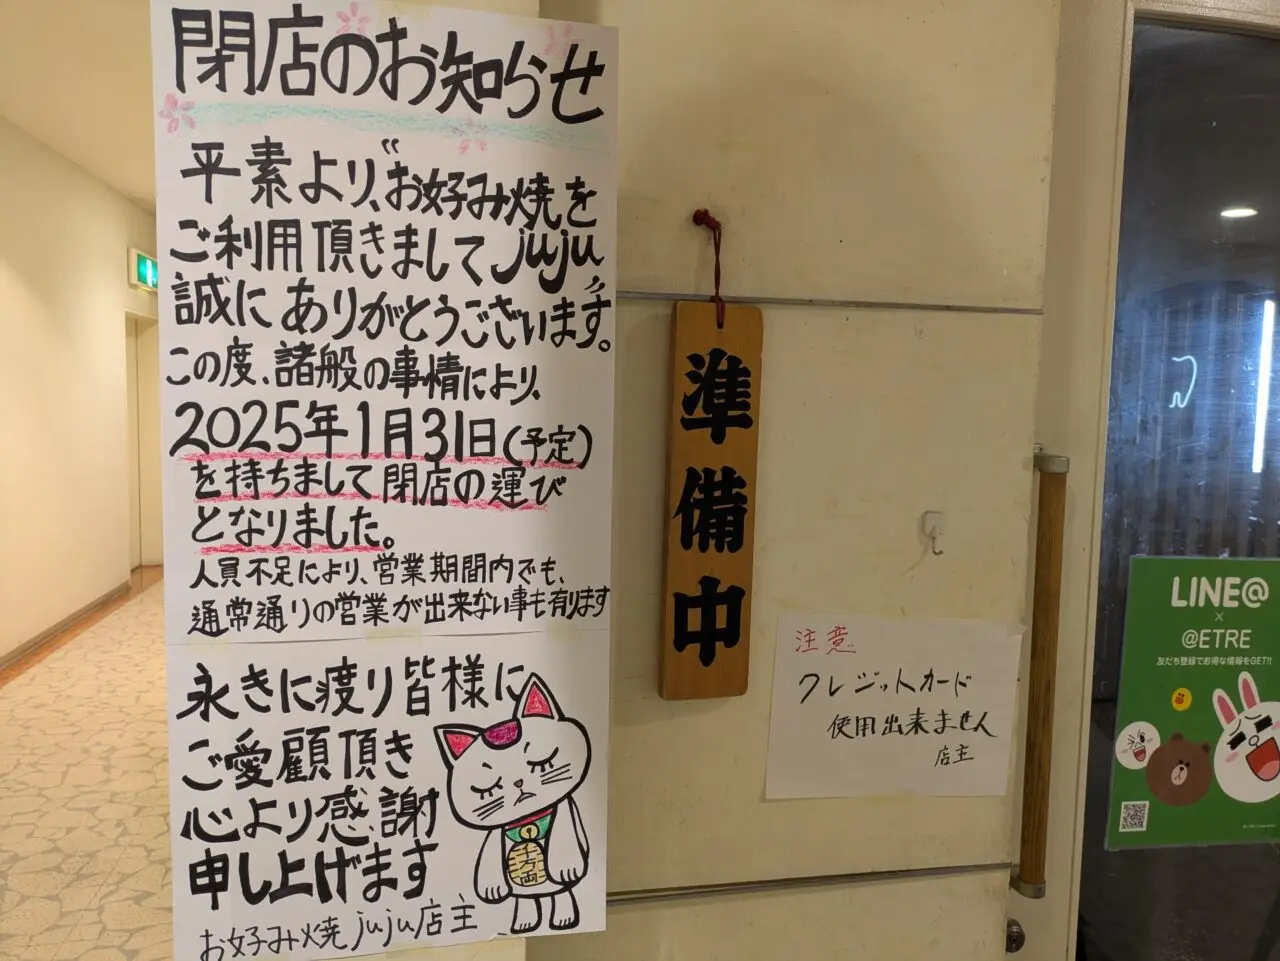 閉店のお知らせ
平素より、“お好み焼を
ご利用頂きましてjuju”
誠にありがとうございます。
この度、諸般の事情により、
2025年1月31日(予定)
を持ちまして閉店の運び
となりました。
人員不足により、営業期間内でも、
通常通りの営業が出来ない事も有ります
永きに渡り皆様に
ご愛顧頂き
心より感謝
申し上げます
お好み焼 juju店主
千万両
準備中
注意
クレジットカード
使用出来ません
店主
LINE@
×
@ETRE
友だち登録でお得な情報をGET!!